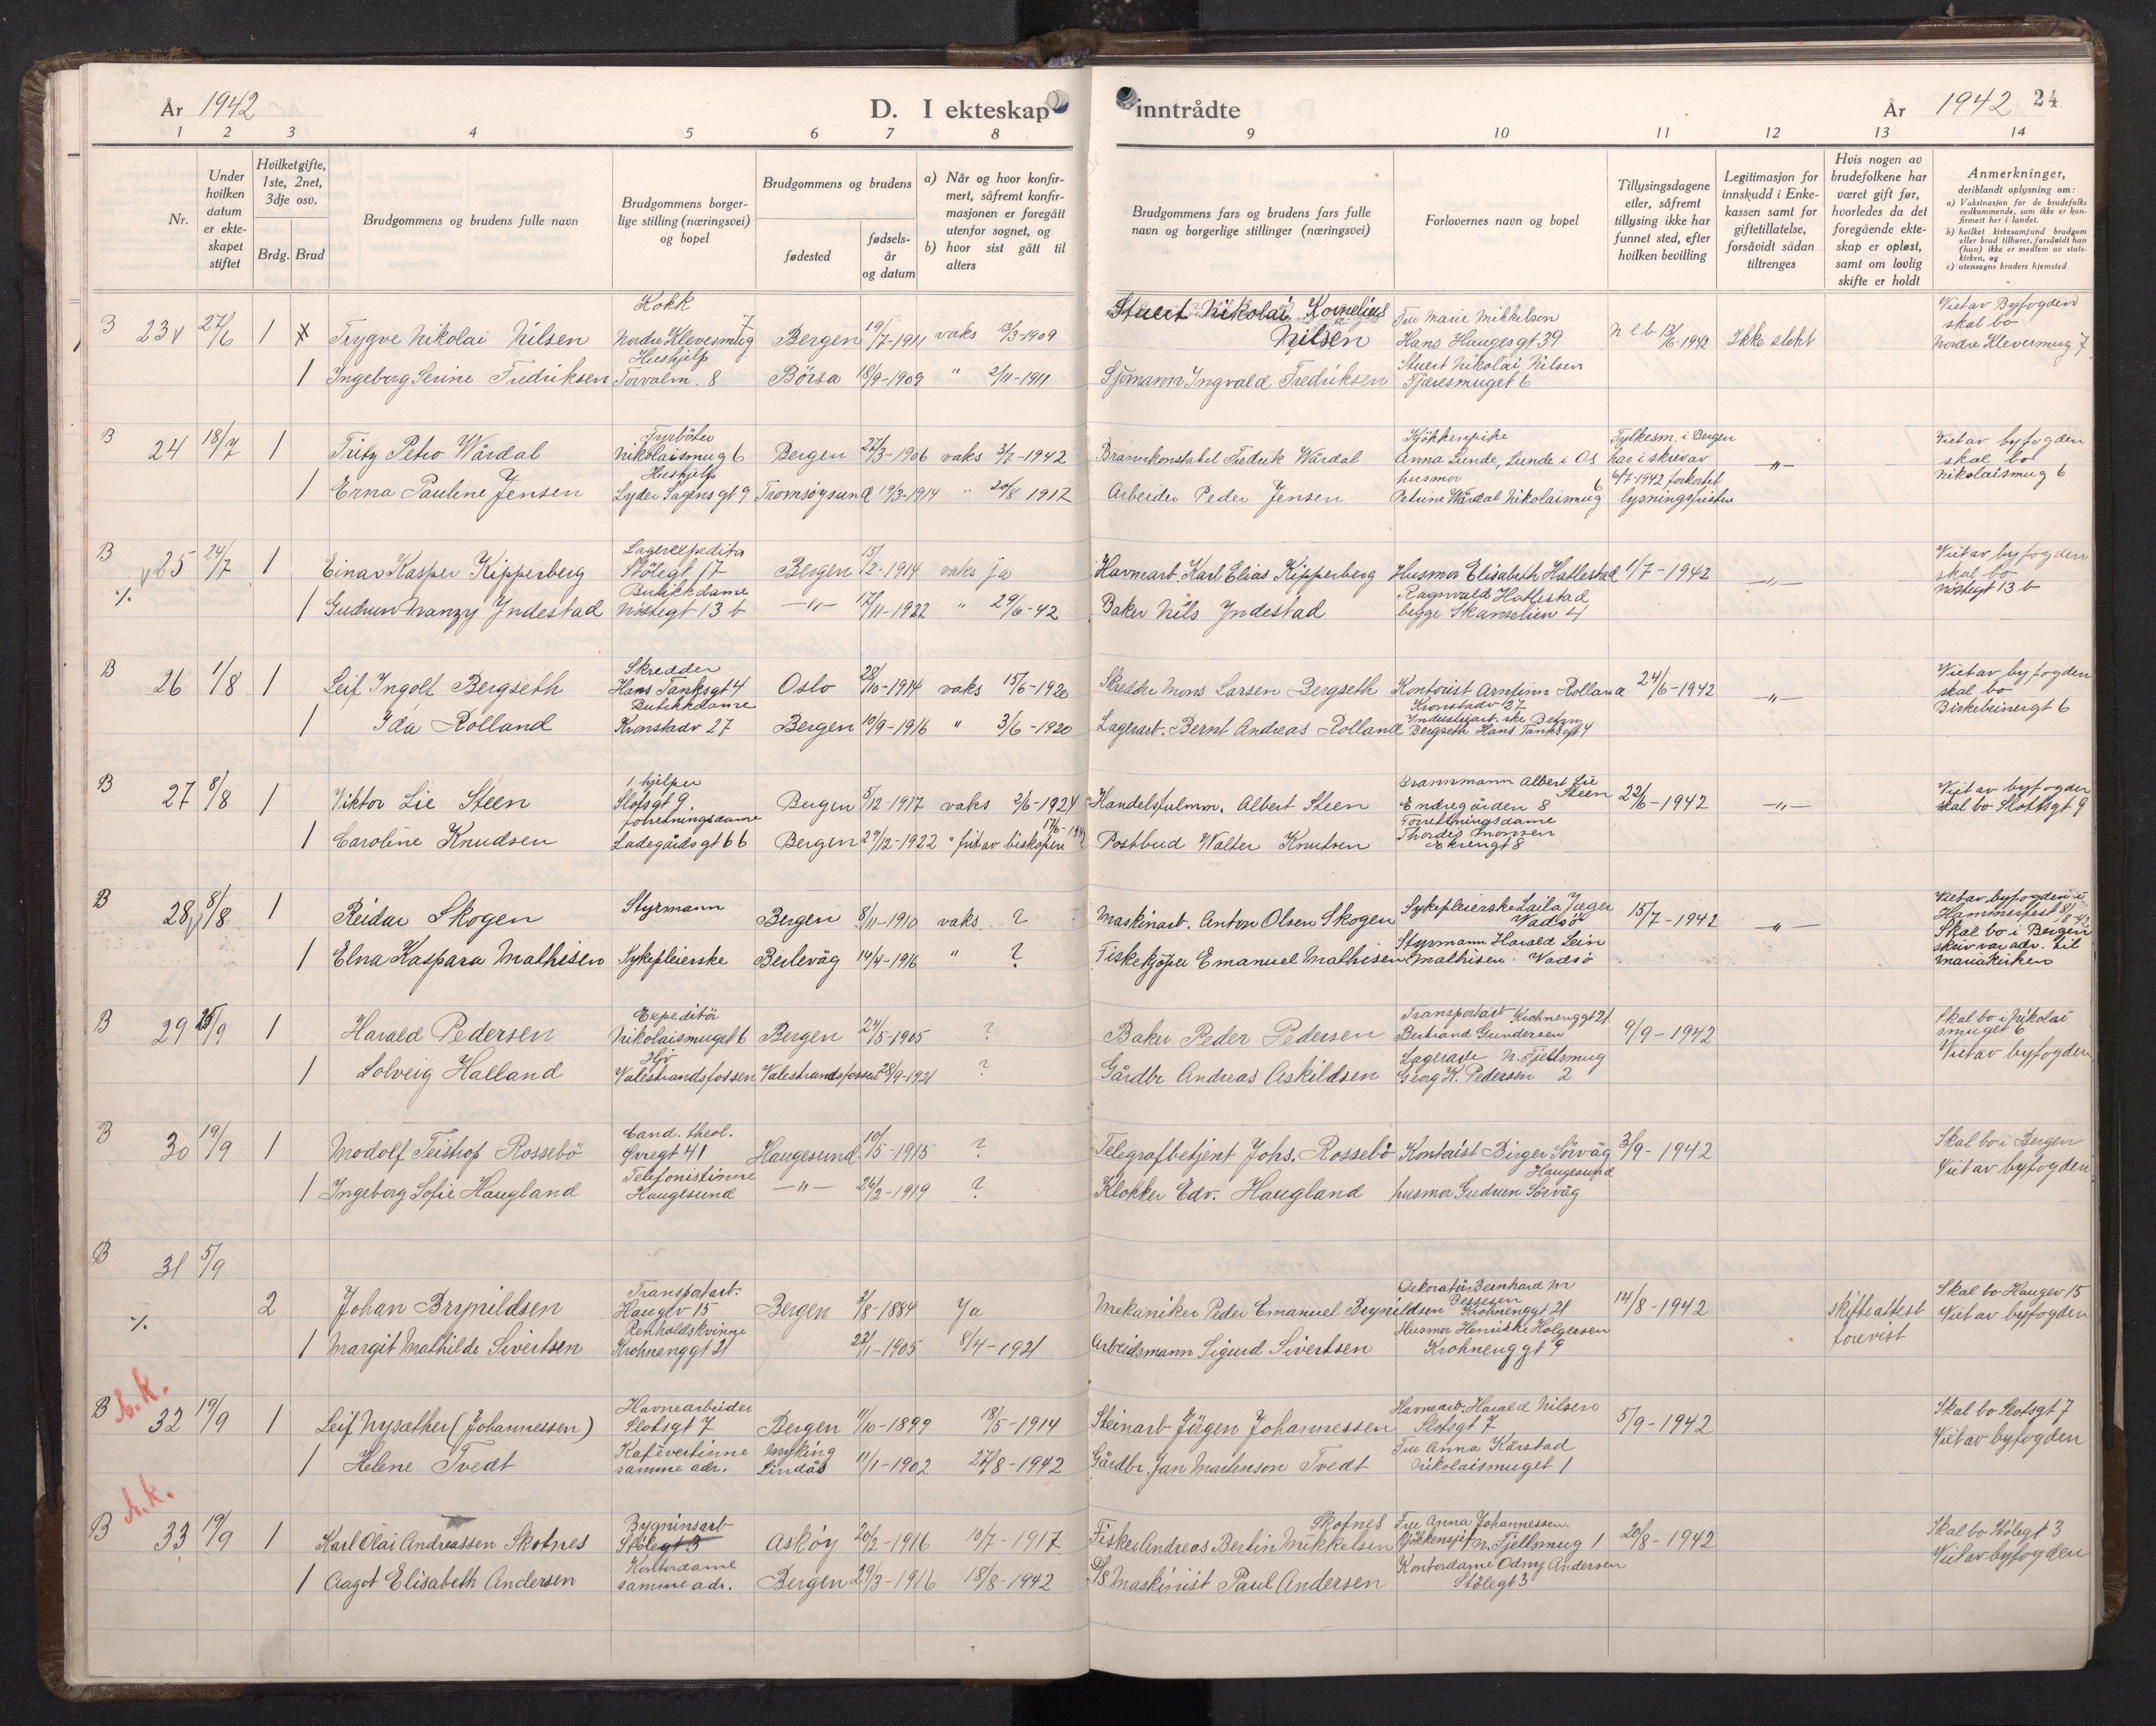 År 1942
D. I ekteskap inntrådte
År 1942 24
1 2 3 4 5 6 7 8 9 10 11 12 13 14
Nr.
Under hvilken datum er ekteskapet stiftet
Hvilket gifte, 1ste, 2net, 3dje osv.
Brdg. Brud
Brudgommens og brudens fulle navn
Brudgommens borgerlige stilling (næringsvei) og bopel
Brudgommens og brudens
fødested
fødselsår og datum
a) Når og hvor konfirmert, såfremt konfirmasjonen er foregått utenfor sognet, og
b) hvor sist gått til alters
Brudgommens fars og brudens fars fulle navn og borgerlige stillinger (næringsvei)
Forlovernes navn og bopel
Tillysingsdagene eller, såfremt tillysing ikke har funnet sted, efter hvilken bevilling
Legitimasjon for innskudd i Enkekassen samt for giftetillatelse, forsåvidt sådan tiltrenges
Hvis nogen av brudefolkene har været gift før, hvorledes da det foregående ekteskap er opløst, samt om lovlig skifte er holdt
Anmerkninger,
deriblandt oplysning om:
a) Vaksinasjon for de brudefolks vedkommende, som ikke er konfirmert her i landet.
b) hvilket kirkesamfund brudgom eller brud tilhører, forsåvidt han (hun) ikke er medlem av statskirken, og
c) utensogns bruders hjemsted
B 23 27/6 1 Trygve Nikolai Nilsen Kokk Nordre Klevesmug 7 Bergen 19/7-1911 vaks 13/3-1909 Stuert Nikolai Kornelius Nilsen Fru Marie Mikkelsen Hans Haugesgt 39 n l b 13/6-1942 Ikke slekt Viet av Byfogden skal bo Nordre Klevesmug 7
1 Ingeborg Serine Fredriksen Hushjelp Torvalm. 8 Börsa 18/9-1909 " 2/11-1911 Sjömann Ingvald Fredriksen Stuert Nikolai Nilsen Fjæresmuget 6
B 24 18/7 1 Fritz Petro Wårdal Fyrböter Nikolaismug 6 Bergen 27/3-1906 vaks 3/7-1942 Brannkonstabel Fredrik Wårdal Kjökkenpike Anna Lunde, Lunde i Os Fylkesm. i Bergen har i skriv av 6/7-1942 forkortet lysningsfristen -"- Viet av byfogden skal bo Nikolaismug 6
1 Erna Pauline Jensen Hushjelp Lyder Sagensgt 9 Tromsöysund 19/3-1914 " 20/8 1912 Arbeider Peder Jensen husmor Petrine Wårdal Nikolaismug 6
B 25 24/7 1 Einar Kasper Kipperberg Lagerexpeditör Stölegt 17 Bergen 15/2-1914 vaks ja Havnearb. Karl Elias Kipperberg Husmor Elisabeth Hatlestad 1/7-1942 -"- Viet av byfogden skal bo Nöstegt 13 b
%. 1 Gudrun Nanzy Yndestad Butikkdame Nöstegt 13 b -"- 17/11-1922 " 29/6-42 Baker Nils Yndestad Ragnvald Hatlestad begge Skanselien 4
B 26 1/8 1 Leif Ingolf Bergseth Skredder Hans Tanksgt 4 Oslo 28/10-1914 vaks 15/6-1920 Skredder Mons Larsen Bergseth Kontorist Arnfinn Rolland Kronstadv 37 24/6-1942 -"- Viet av byfogden skal bo Birkebeinergt 6
1 Ida Rolland Butikkdame Kronstadv 27 Bergen 10/9-1916 " 3/6-1920 Lagerarb. Bernt Andreas Rolland Industriarb.ske Bergseth Hans Tanksgt 4
B 27 8/8 1 Viktor Lie Steen hjelper Slotsgt 9. Bergen 5/12-1917 vaks 2/6-1924 Handelsfulm. Albert Steen Brannmann Albert Lie Steen Endregården 8 22/6-1942 -"- Viet av byfogden skal bo Slottsgt 9
1 Caroline Knudsen forretningsdame Ladegårdsgt 66 Bergen 29/12-1922 " frit av biskopen Postbud Walter Knutsen Forretningsdame Thordis Monsen Ekrengt 8
B 28 8/8 1 Reidar Skogen Styrmann Bergen 8/11-1910 vaks ? Maskinarb. Anton Olsen Skogen Sykepleierske Laila Jæger Vadsö 15/7-1942 -"- Viet av byfogden i Hammerfest 8/8-42 Skal bo i Bergen skriv var adr. til Mariakirken
1 Elna Kaspara Mathisen Sykepleierske Berlevåg 14/4-1916 " ? Fiskekjöper Emanuel Mathisen Styrmann Harald Lein Mathisen Vadsö
B 29 25/9 1 Harald Pedersen Expeditör Nikolaismuget 6 Bergen 24/5-1905 ? Baker Peder Pedersen Transportarb Krohnenggt 21 Bertrand Gundersen 9/9-1942 Skal bo i Nikolaismuget 6 Viet av byfogden
1 Solveig Halland Hjv Valestrandsfossen Valestrandsfossen 28/9-1921 ? Gårdbr Andreas Askildsen Lagerarb N. Fjellsmug Georg K. Pedersen 2
B 30 19/9 1 Modolf Teistrop Rossebö Cand. theol. Øvregt 41 Haugesund 10/5-1915 ? Telegrafbetjent Johs. Rossebö Kontorist Birger Sörvåg Haugesund 3/9-1942 Skal bo i Bergen Viet av byfogden
1 Ingeborg Sofie Haugland Telefonistinne Haugesund -"- 26/2-1919 ? Klokker Edv. Haugland husmor Gudrun Sörvåg
B 31 5/9
%. 2 Johan Brynildsen Transportarb. Haugev 15 Bergen 3/8-1884 Ja Mekaniker Peder Emanuel Brynildsen Dekoratör Bernhard M Bessesen Krohnenggt 21 14/8-1942 skifteattest forevist Skal bo Haugev 15 Viet av byfogden
1 Margit Mathilde Sivertsen Renholdskvinne Krohnenggt 21 23/1-1905 8/4-1921 Arbeidsmann Sigurd Sivertsen Husmor Henrikke Holgersen Krohnenggt 9
B 32 19/9 1 Leif Nysæther (Johannessen) Havnearbeider Slotsgt 7 Bergen 11/10-1899 18/5-1914 Steinarb Jörgen Johannessen Havnearb. Harald Nilsen Slotsgt 7 5/9-1942 Skal bo Slotsgt 7 Viet av byfogden
1 Helene Tvedt Kafévertinne samme adr. Myking Lindås 11/1-1902 27/8-1942 Gårdbr. Jan Martenson Tvedt Fru Anna Kårstad Nikolaismuget 1
B 33 19/9 1 Karl Olai Andreassen Skotnes Bygninsarb Stölegt 3 Asköy 20/2-1916 10/7-1917 Fisker Andreas Bertin Mikkelsen Skotnes Fru Anna Johannessen. N. Fjellsmug 1 20/8-1942 Skal bo Stölegt 3 Viet av byfogden
1 Aagot Elisabeth Andersen Kontordame samme adr. Bergen 29/3-1916 18/8-1942 Maskinist Paul Andersen Kontordame Odny Andersen Stölegt 3